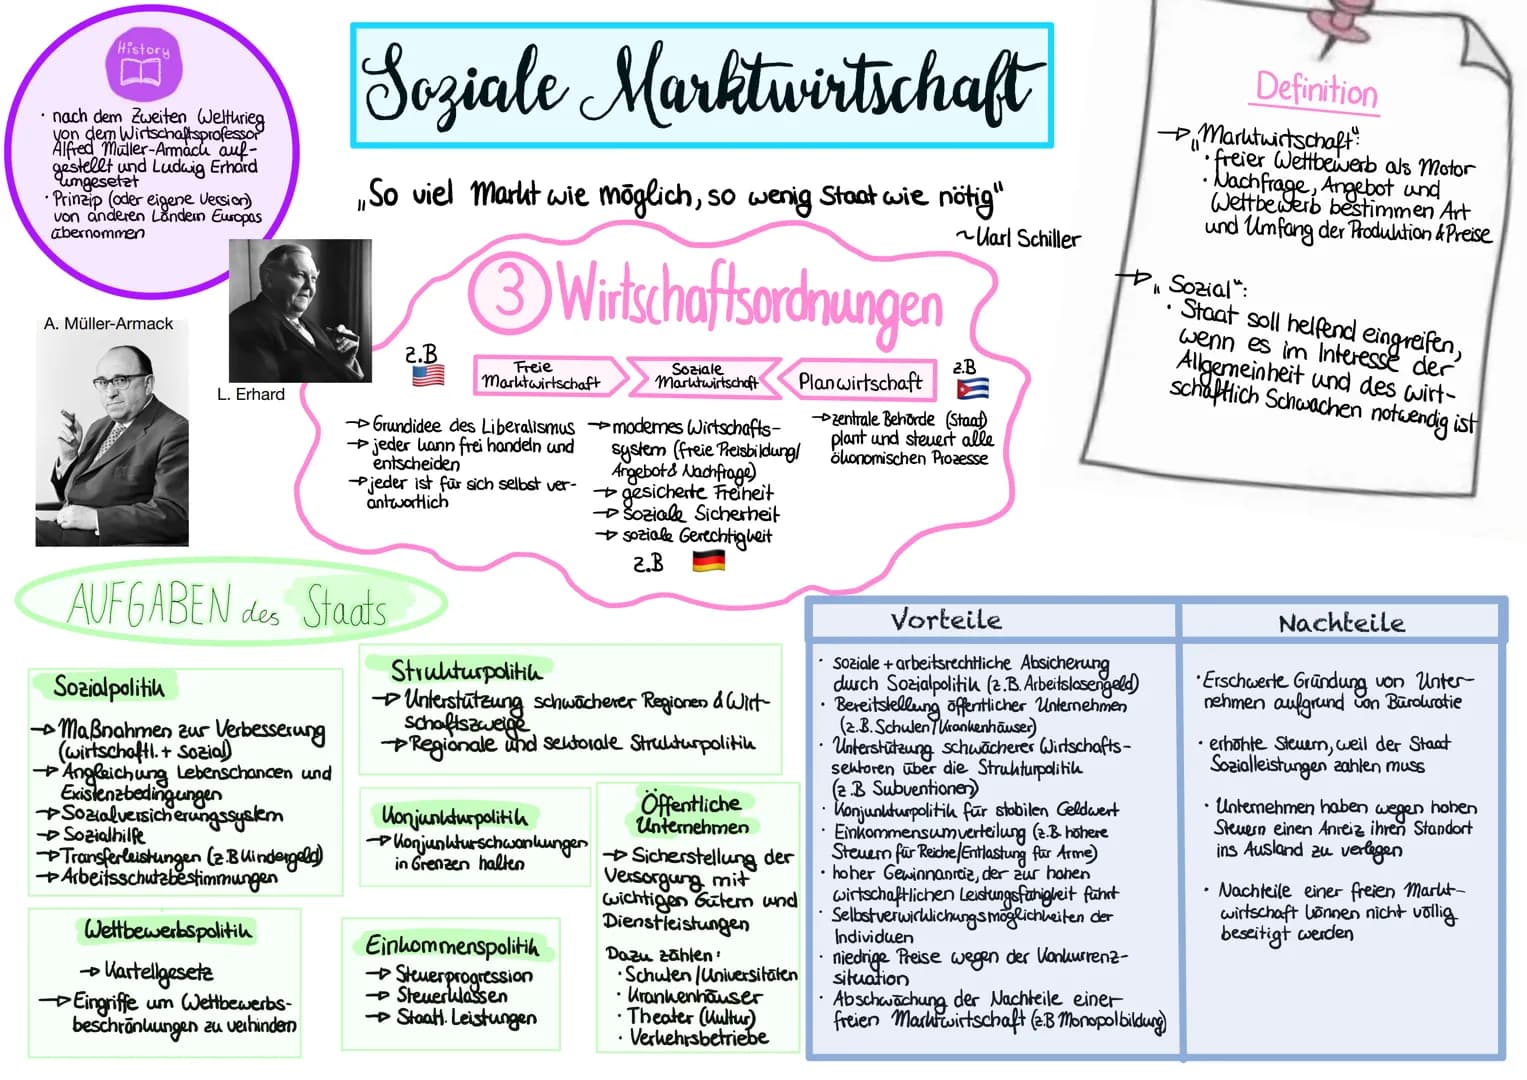 History
· nach dem Zweiten Weltkrieg
von dem Wirtschaftsprofessor
Alfred Müller-Armack auf-
gestellt und Ludwig Erhard
umgesetzt
· Prinzip (oder eigene Version)
von anderen Ländern Europas
übernommen
A. Müller-Armack
L. Erhard
Soziale Marktwirtschaft
„So viel Markt wie möglich, so wenig Staat wie nötig"
~ Karl Schiller
Definition
→ „Marktwirtschaft":
· freier Wettbewerb als Motor
· Nachfrage, Angebot und
Wettbewerb bestimmen Art
und Umfang der Produktion & Preise
→ „Sozial":
· Staat soll helfend eingreifen,
wenn es im Interesse der
Allgemeinheit und des wirt-
schaftlich Schwachen notwendig ist
3 Wirtschaftsordnungen
z.B
Freie
Marktwirtschaft
Soziale
Marktwirtschaft
Planwirtschaft
z.B
→ Grundidee des Liberalismus
→ jeder kann frei handeln und
entscheiden
→ jeder ist für sich selbst ver-
antwortlich
→ modernes Wirtschafts-
system (freie Preisbildung/
Angebot & Nachfrage)
→ gesicherte Freiheit
→ Soziale Sicherheit
→ soziale Gerechtigkeit
z.B
→ zentrale Behörde (Staat)
plant und steuert alle
ökonomischen Prozesse
AUFGABEN des Staats
Sozialpolitik
→ Maßnahmen zur Verbesserung
(wirtschaftl. + Sozial)
→ Angleichung Lebenschancen und
Existenzbedingungen
→ Sozialversicherungssystem
→ Sozialhilfe
→ Transferleistungen (z.B Kindergeld)
→ Arbeitsschutzbestimmungen
Wettbewerbspolitik
→ Kartellgesetz
→ Eingriffe um Wettbewerbs-
beschränkungen zu verhindern
Strukturpolitik
→ Unterstützung schwächerer Regionen & Wirt-
schaftszweige
→ Regionale und sektorale Strukturpolitik
Konjunkturpolitik
→ Konjunkturschwankungen
in Grenzen halten
Einkommenspolitik
→ Steuerprogression
→ Steuerklassen
→ Staatl. Leistungen
Öffentliche
Unternehmen
→ Sicherstellung der
Versorgung mit
wichtigen Gütern und
Dienstleistungen
Dazu zählen:
· Schulen / Universitäten
· Krankenhäuser
· Theater (Kultur)
· Verkehrsbetriebe
Vorteile
· soziale + arbeitsrechtliche Absicherung
durch Sozialpolitik (z.B. Arbeitslosengeld)
· Bereitstellung öffentlicher Unternehmen
(z.B. Schulen / Krankenhäuser)
· Unterstützung schwächerer Wirtschafts-
sektoren über die Strukturpolitik
(z.B Subventionen)
· Konjunkturpolitik für stabilen Geldwert
· Einkommensumverteilung (z.B. höhere
Steuern für Reiche/Entlastung für Arme)
· hoher Gewinnanreiz, der zur hohen
wirtschaftlichen Leistungsfähigkeit führt
· Selbstverwirklichungsmöglichkeiten der
Individuen
· niedrige Preise wegen der Konkurrenz-
situation
· Abschwächung der Nachteile einer
freien Marktwirtschaft (z.B Monopolbildung)
Nachteile
· Erschwerte Gründung von Unter-
nehmen aufgrund von Bürokratie
· erhöhte Steuern, weil der Staat
Sozialleistungen zahlen muss
· Unternehmen haben wegen hohen
Steuern einen Anreiz ihren Standort
ins Ausland zu verlegen
· Nachteile einer freien Markt-
wirtschaft können nicht völlig
beseitigt werden